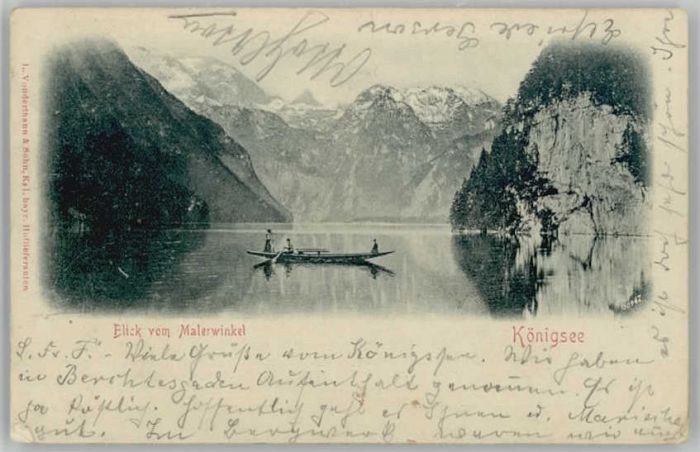 L. Vonderthann & Sohn, Kgl. bayr. Hoflieferanten
00947
Blick vom Malerwinkel
Königsee
L. Fr. F. - Viele Grüße vom Königssee. Wir haben
in Berchtesgaden Aufenthalt genommen. Es ist
ja köstlich. Hoffentlich geht es Ihnen u.
gut. Im Bergwerk waren wir auch
es ist doch sehr schön. Ihre